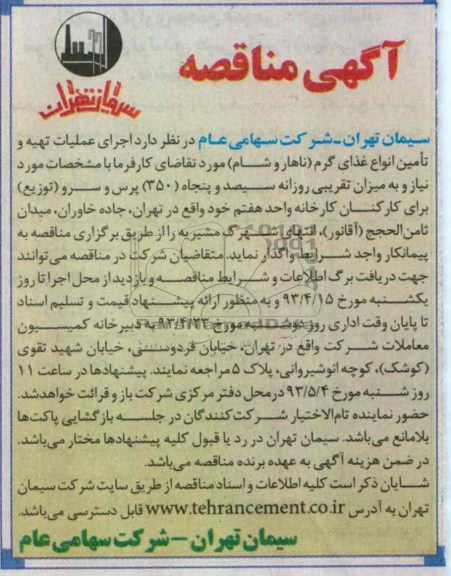 آگهی مناقصه
سیمان تهران
سیمان تهران - شرکت سهامی عام در نظر دارد اجرای عملیات تهیه و
تأمین انواع غذای گرم (ناهار و شام) مورد تقاضای کارفرما با مشخصات مورد
نیاز و به میزان تقریبی روزانه سیصد و پنجاه (۳۵۰) پرس و سرو (توزیع)
برای کارکنان کارخانه واحد هفتم خود واقع در تهران، جاده خاوران، میدان
ثامن‌الحجج (آقانور)، انتهای شهرک مشیریه را از طریق برگزاری مناقصه به
پیمانکار واجد شرایط واگذار نماید. متقاضیان شرکت در مناقصه می‌توانند
جهت دریافت برگ اطلاعات و شرایط مناقصه و بازدید از محل اجرا تا روز
یکشنبه مورخ ۹۳/۴/۱۵ و به منظور ارائه پیشنهاد قیمت و تسلیم اسناد
تا پایان وقت اداری روز دوشنبه مورخ به دبیرخانه کمیسیون
معاملات شرکت واقع در تهران، خیابان فردوسی، خیابان شهید تقوی
(کوشک)، کوچه انوشیروانی، پلاک ۵ مراجعه نمایند. پیشنهادها در ساعت ۱۱
روز شنبه مورخ ۹۳/۵/۴ در محل دفتر مرکزی شرکت باز و قرائت خواهد شد.
حضور نماینده تام‌الاختیار شرکت‌کنندگان در جلسه بازگشایی پاکت‌ها
بلامانع می‌باشد. سیمان تهران در رد یا قبول کلیه پیشنهادها مختار می‌باشد.
در ضمن هزینه آگهی به عهده برنده مناقصه می‌باشد.
شایان ذکر است کلیه اطلاعات و اسناد مناقصه از طریق سایت شرکت سیمان
تهران به آدرس www.tehrancement.co.ir قابل دسترسی می‌باشد.
سیمان تهران - شرکت سهامی عام